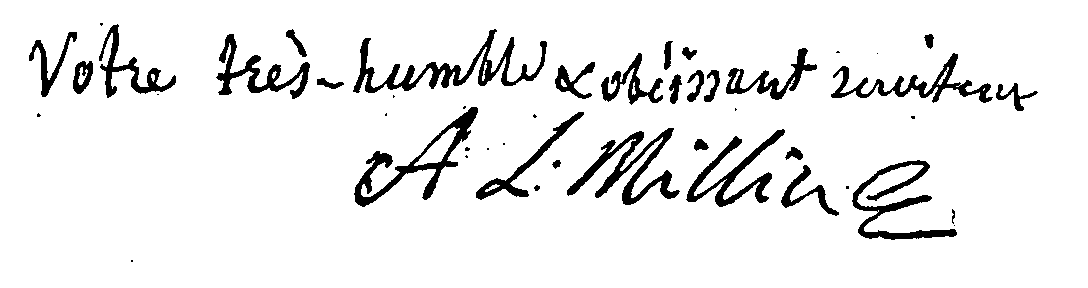 Votre très-humble & obéissant serviteur
A. L. Millin